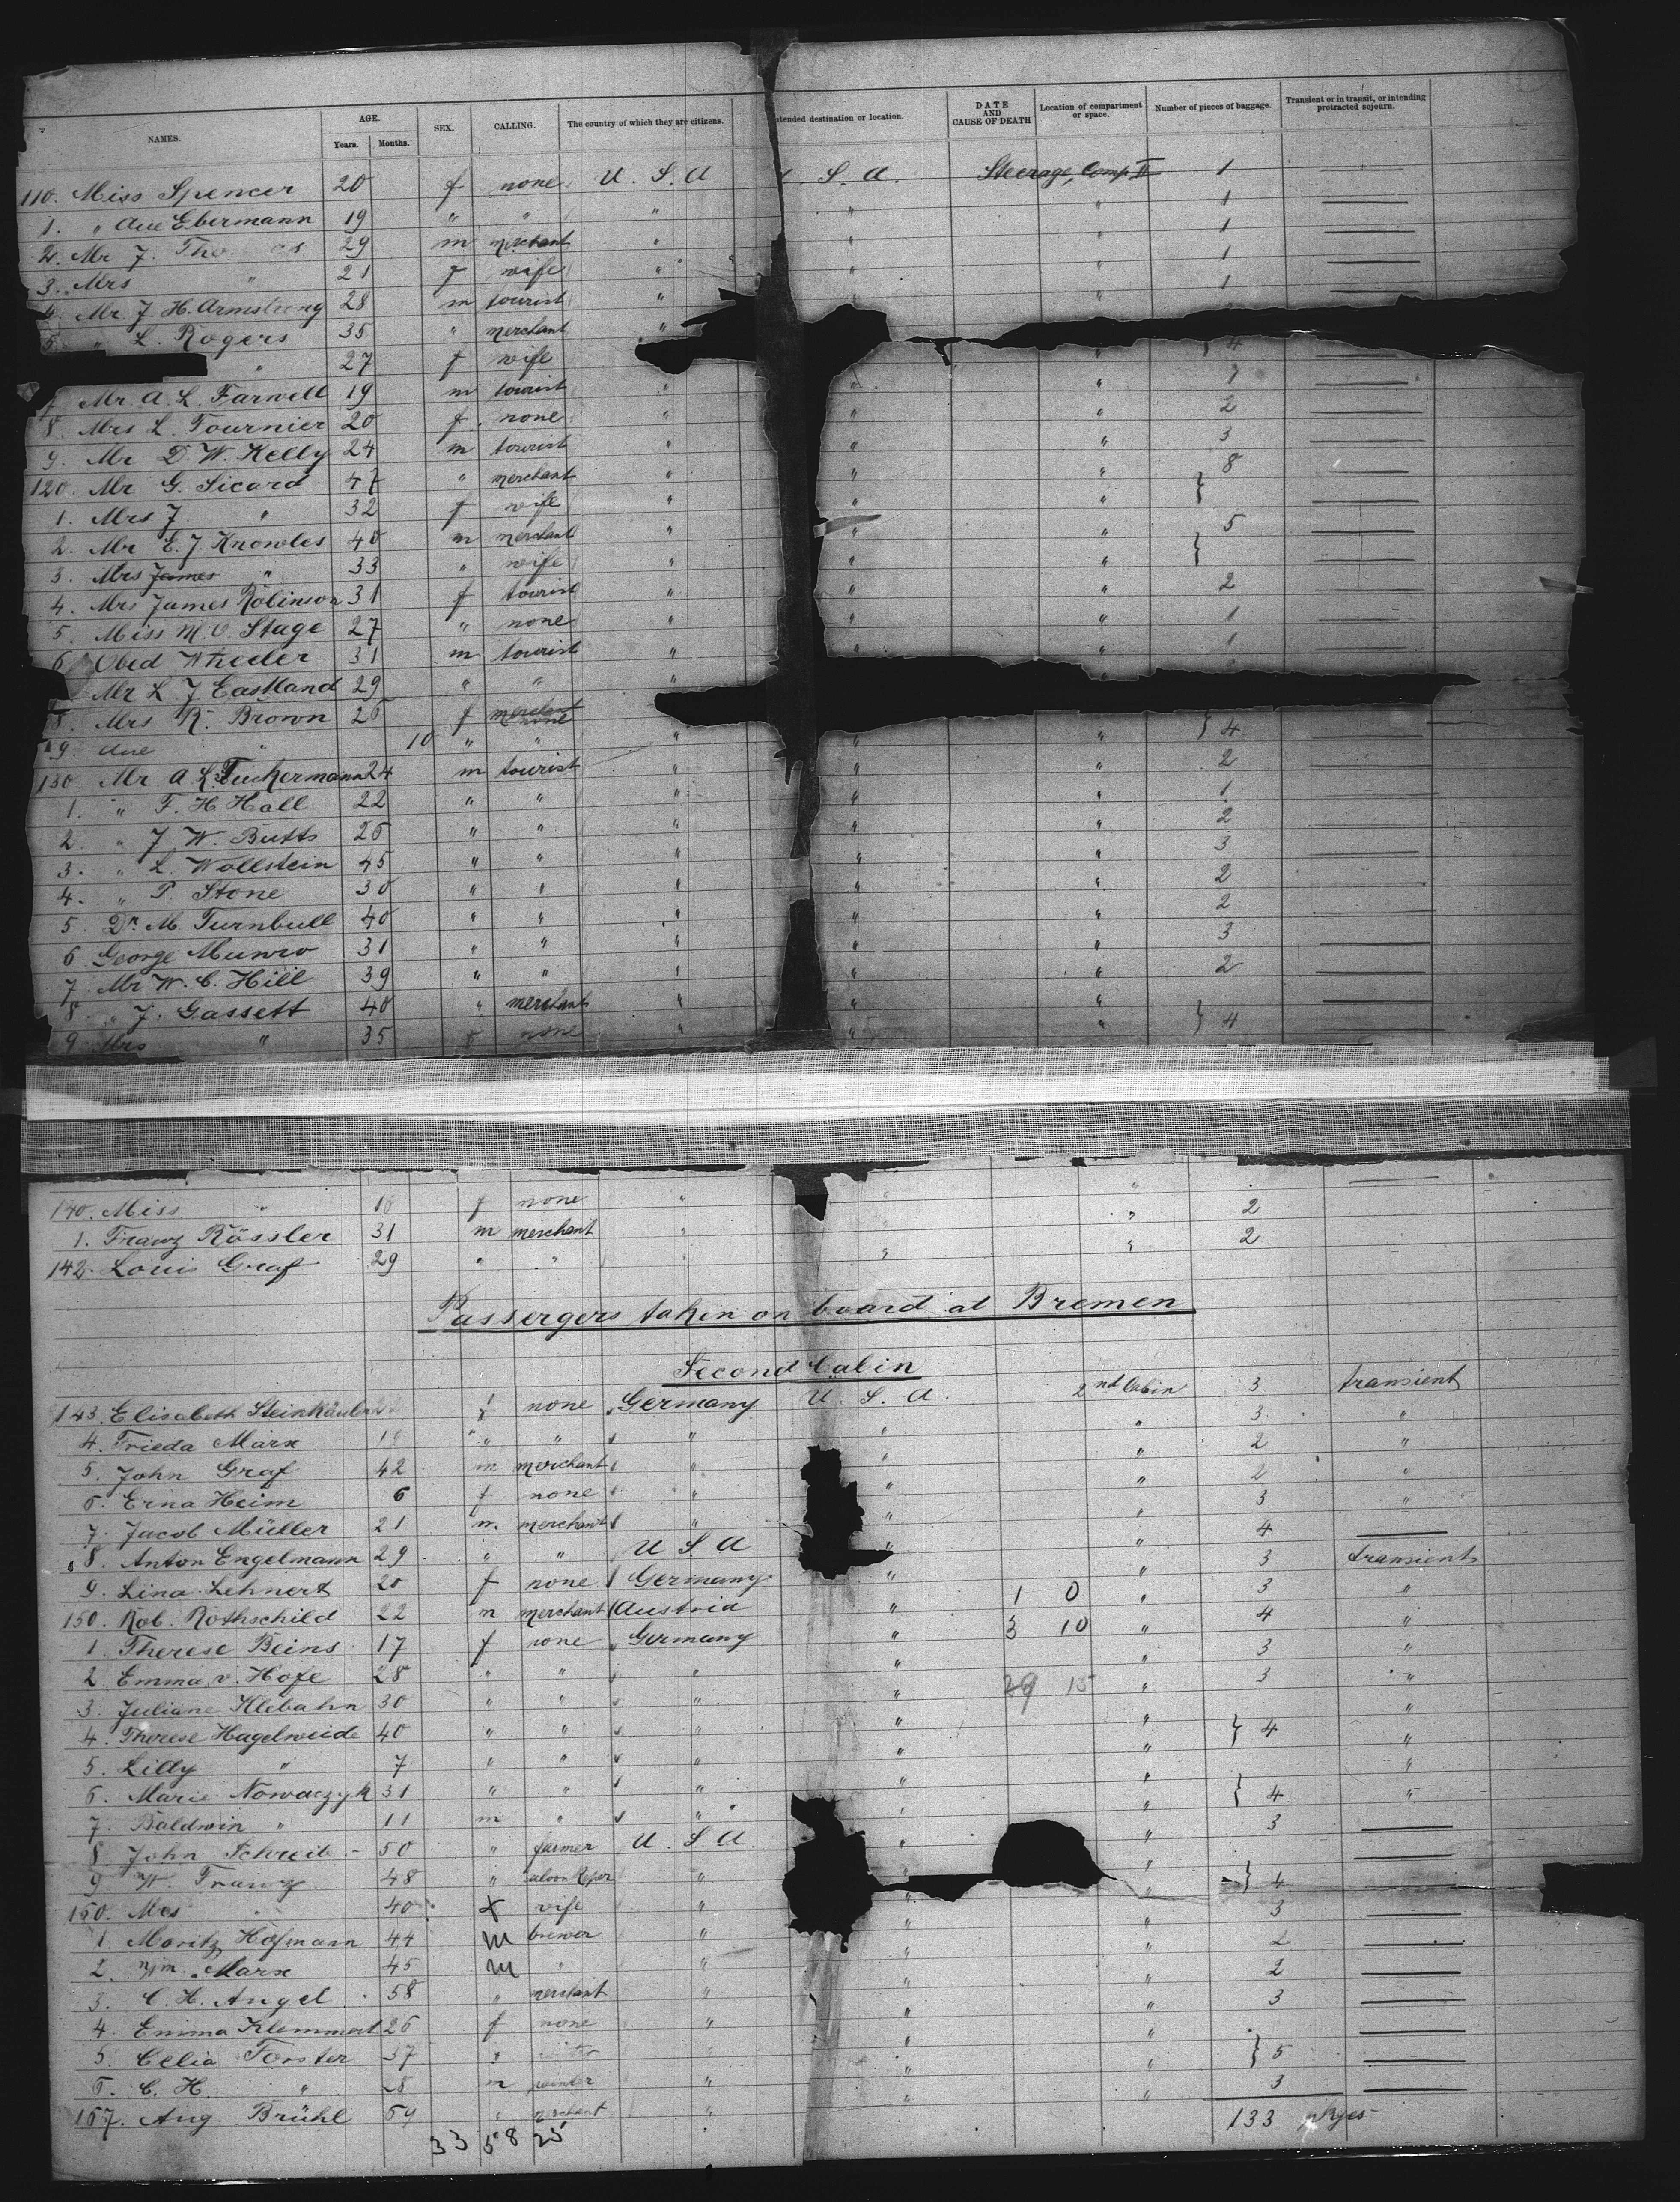 NAMES. AGE. Years. Months. SEX. CALLING. The country of which they are citizens. Intended destination or location. DATE AND CAUSE OF DEATH Location of compartment or space. Number of pieces of baggage. Transient or in transit, or intending protracted sojourn.
110. Miss Spencer 20 f none U. S. A U. S. A. Steerage, Comp II 1 —
1. " Aue Ebermann 19 " " " " " 1 —
2. Mr J. Tho as 29 m merchant " " " 1 —
3. Mrs " 21 f wife " " " 1 —
4. Mr J H. Armstrong 28 m tourist " " 1
5. " L. Rogers 35 " merchant "
" 27 f wife " } 4 —
7 Mr A. L. Farwell 19 m tourist " " " 1 —
8. Mrs L. Tournier 20 f none " " " 2 —
9. Mr D. W. Kelly 24 m tourist " " " 3 —
120. Mr G. Sicard 47 " merchant " " " } 8 —
1. Mrs J. " 32 f wife " " " —
2. Mr E. J. Knowles 40 m merchant " " " } 5 —
3. Mrs James " 33 " wife " " " —
4. Mrs James Robinson 31 f tourist " " " 2 —
5. Miss M. O. Stage 27 " none " " " 1 —
6. Obed Wheeler 31 m tourist " " " 1
Mr L. J. Eastland 29 " " "
8. Mrs R. Brown 26 f merchant none } 4
9. Aue " 10 " " " " "
130. Mr A. L. Tuckermann 24 m tourist " " " 2 —
1. " F. H. Hall 22 " " " " " 1 —
2. " J. W. Butts 26 " " " " " 2 —
3. " L. Wollstein 45 " " " " " 3 —
4. " P. Stone 30 " " " " " 2 —
5. Dr. M. Turnbull 40 " " " " " 2 —
6 George Munro 31 " " " " " 3 —
7. Mr W. C. Hill 39 " " " " " 2 —
8. " J. Gassett 40 " merchant " " " } 4 —
9 Mrs " 35 f none " " " —
140. Miss " 16 f none " " —
1. Franz Rössler 31 m merchant " " 2
142. Louis Graf 29 " " " " " 2
Passergers taken on board at Bremen
Second Cabin
143. Elisabeth Steinhäuler f none Germany U. S. A. 2nd Cabin 3 transient
4. Frieda Marx " " " " " 3 "
5. John Graf 42 m merchant " " " 2 "
6. Erna Heim 6 f none " " " 2 "
7. Jacob Müller 21 m. merchant " " 3 "
8. Anton Engelmann 29 " " U S A " " 4 —
9. Lina Lehnert 20 f none Germany " 3 transient
150. Rob. Rothschild 22 m merchant Austria " 1 0 " 3 "
1. Therese Beins 17 f none Germany " 3 10 " 4 "
2 Emma v. Hofe 28 " " " " " 3 "
3. Juliane Klebahn 30 " " " " 29 15 " 3 "
4. Therese Hagelweide 40 " " " " " } 4 "
5. Lilly " 7 " " " " " "
6. Marie Nowaczyk 31 " " " " " } 4 "
7. Baldwin " 11 m " " " " "
8 John Schreib 50 " farmer U. S. A. " " 3 —
9 W. Franz 48 " saloon Kper " " " } 4 —
160. Mrs " 40 f wife " " " —
1 Moritz Hofmann 44 m brewer " " " 3 —
2. Wm. Marx 45 m " " " " 2 —
3. C. H. Angel 58 " merchant " " " 2 —
4. Emma Klemmert 26 f none " " " 3 —
5. Celia Forster 37 " " " } 5 —
6. C. H. " m painter " " " —
167. Aug Brühl 59 " merchant " " " 3 —
33 58 25 133 pkges